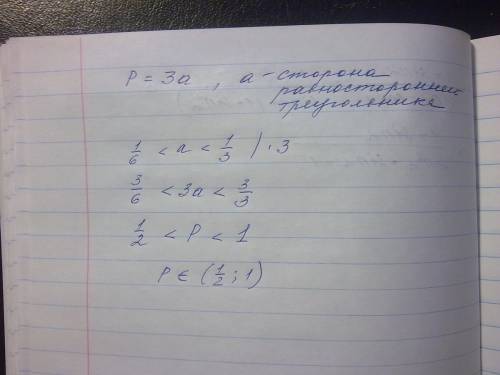 P = 3a , a - сторона
равностороннего
треугольника
1/6 < a < 1/3 | · 3
3/6 < 3a < 3/3
1/2 < P < 1
P ∈ (1/2 ; 1)